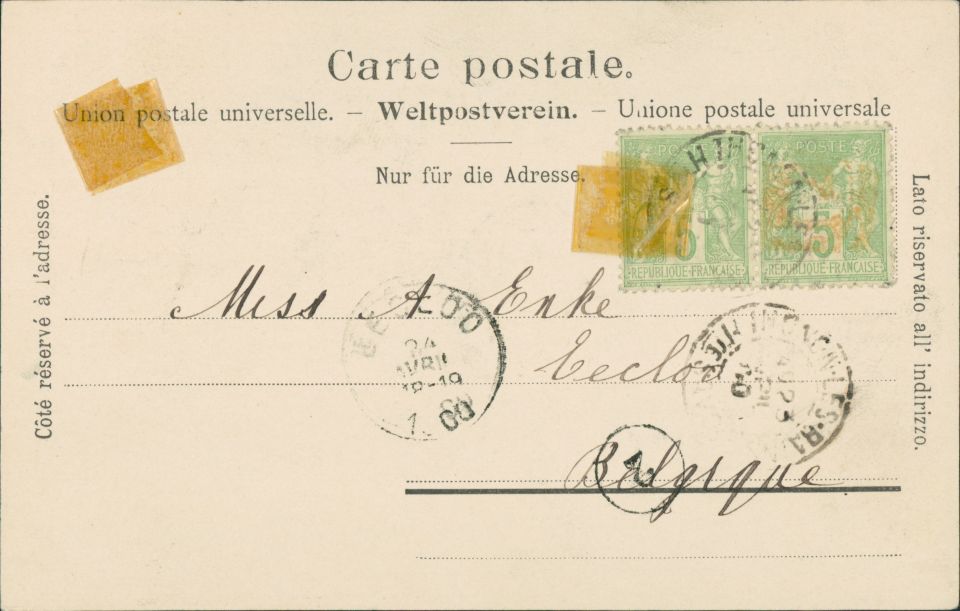 Carte postale.
Union postale universelle. – Weltpostverein. – Unione postale universale
Nur für die Adresse.
Côté réservé à l'adresse.
Lato riservato all' indirizzo.
POSTE
5
REPUBLIQUE FRANÇAISE
POSTE
5
REPUBLIQUE FRANÇAISE
Miss A Enke
Eecloo
Belgique
EECLOO
24
AVRIL
18-19
1900